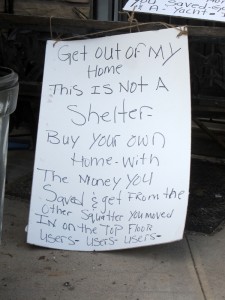 You Saved-
Yacht-
Get out of My
Home
This Is Not A
Shelter-
Buy Your own
Home-with
The Money You
Saved & get From the
Other Squatter You moved
IN on the Top Floor
users- users- users-